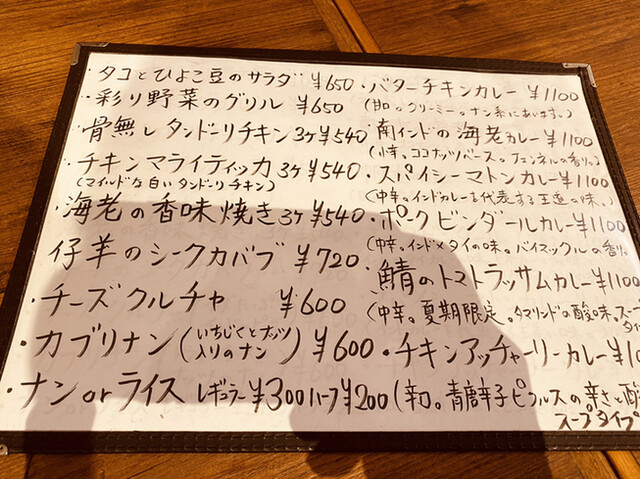 ・タコとひよこ豆のサラダ ¥650
・彩り野菜のグリル ¥650
・骨無しタンドーリチキン3ケ¥540
・チキンマライティッカ3ケ¥540
(マイルドな白いタンドーリチキン)
・海老の香味焼き3ケ¥540
仔羊のシークカバブ ¥720
・チーズクルチャ ¥600
・カブリナン(いちじくとナッツ入りのナン)¥600
・ナンorライス レギュラー¥300ハーフ¥200
・バターチキンカレー ¥1100
(甘口。クリーミー。ナン系にあいます。)
・南インドの海老カレー¥1100
(小辛。ココナッツベース。フェンネルの香り。)
・スパイシーマトンカレー¥1100
(中辛。インドカレーを代表する王道の味。)
・ポークビンダールカレー¥1100
(中辛。インド×タイの味。バイマックルの香り。
・鯖のトマトラッサムカレー¥1100
(中辛。夏期限定。タマリンドの酸味。スープ
・チキンアッチャーリーカレー¥1
(辛口。青唐辛子ピクルスの辛さと酸
スープタイプ